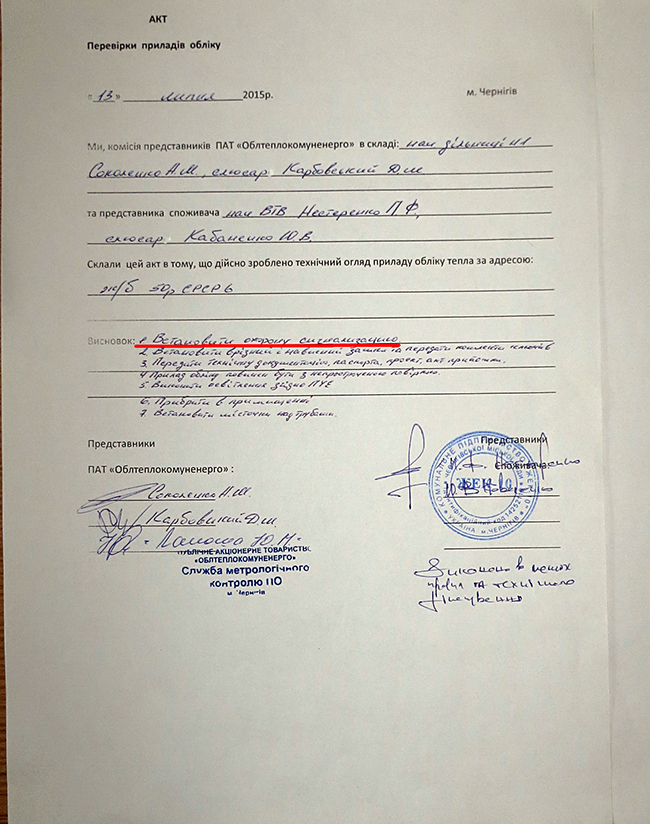 АКТ
Перевірки приладів обліку
« 13 » липня 2015р. м. Чернігів
Ми, комісія представників ПАТ «Облтеплокомуненерго» в складі: нач дільниці №1
Соколенко А.М., слюсар Карбовський Д.М
та представника споживача нач ВТВ Нестеренко П.Ф.,
слюсар Кабаненко Ю.В.
Склали цей акт в тому, що дійсно зроблено технічний огляд приладу обліку тепла за адресою:
ж/б 50р СРСР 6
Висновок: 1. Встановити охорону сигналізацію
2. Встановити врізний і навісний замки та передати комплекти ключів
3. Передати технічну документацію, паспорта, проект, акт прийомки.
4. Прилад обліку повинен бути з непростроченою повіркою.
5 Виконати освітлення згідно ПУЕ
6. Прибрати в приміщенні
7. Встановити місточки над трубами.
Представники Представники
ПАТ «Облтеплокомуненерго» : Споживача
Соколенко А.М.
Карбовский Д.М.
ПУБЛІЧНЕ АКЦІОНЕРНЕ ТОВАРИСТВО
«ОБЛТЕПЛОКОМУНЕНЕРГО»
Служба метрологічного
контролю ПО
м. Чернігів
КОМУНАЛЬНЕ ПІДПРИЄМСТВО
ЧЕРНІГІВСЬКОЇ МІСЬКОЇ РАДИ
ЖЕК-10
УКРАЇНА м.ЧЕРНІГІВ
Виконано в межах
правил та технічного